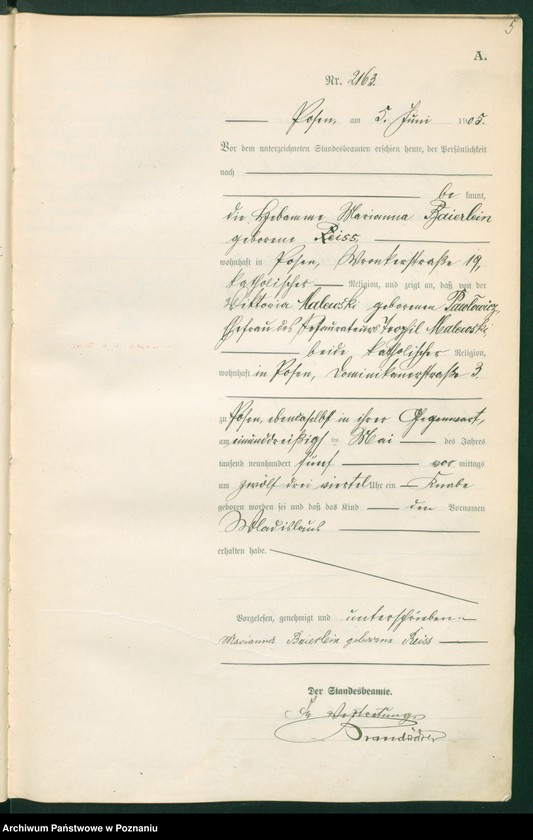 5
A.
Nr. 2163.
Posen, am 5. Juni 1905.
Vor dem unterzeichneten Standesbeamten erschien heute, der Persönlichkeit
nach
be kannt,
die Hebamme Marianna Baierlein
geborene Reiss,
wohnhaft in Posen, Wronkerstraße 19,
katholischer Religion, und zeigte an, daß von der
Viktoria Malewski geborenen Pawlowicz,
Ehefrau des Restaurateurs Teophil Malewski
beide katholischer Religion,
wohnhaft in Posen, Dominikanerstraße 3.
zu Posen, ebendaselbst in ihrer Gegenwart,
am einunddreißigsten Mai des Jahres
tausend neunhundert fünf vor mittags
um zwölf drei viertel Uhr ein Knabe
geboren worden sei und daß das Kind den Vornamen
Wladislaus
erhalten habe.
Vorgelesen, genehmigt und unterschrieben
Marianna Baierlein geborene Reiss
Der Standesbeamte.
In Vertretung
Archiwum Państwowe w Poznaniu